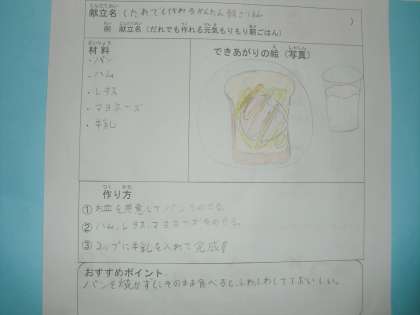 献立名（だれでも作れるかんたん朝ごはん）
例 献立名（だれでも作れる元気もりもり朝ごはん）
材料
できあがりの絵（写真）
・パン
・ハム
・レタス
・マヨネーズ
・牛乳
作り方
①お皿を用意してパンをのせる。
②ハム、レタス、マヨネーズをのせる。
③コップに牛乳を入れて完成!!
おすすめポイント
パンを焼かずに、そのまま食べると、ふわふわしてておいしい。